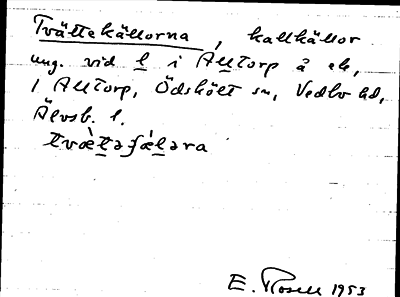 Tvättekällorna, kallkällor
ung. vid l i Alltorp å ek,
i Alltorp, Ödskölt sn, Vedbo hd,
Älvsb. l.
tvæ̀təʃæ̀ləra
E. Rosell 1953